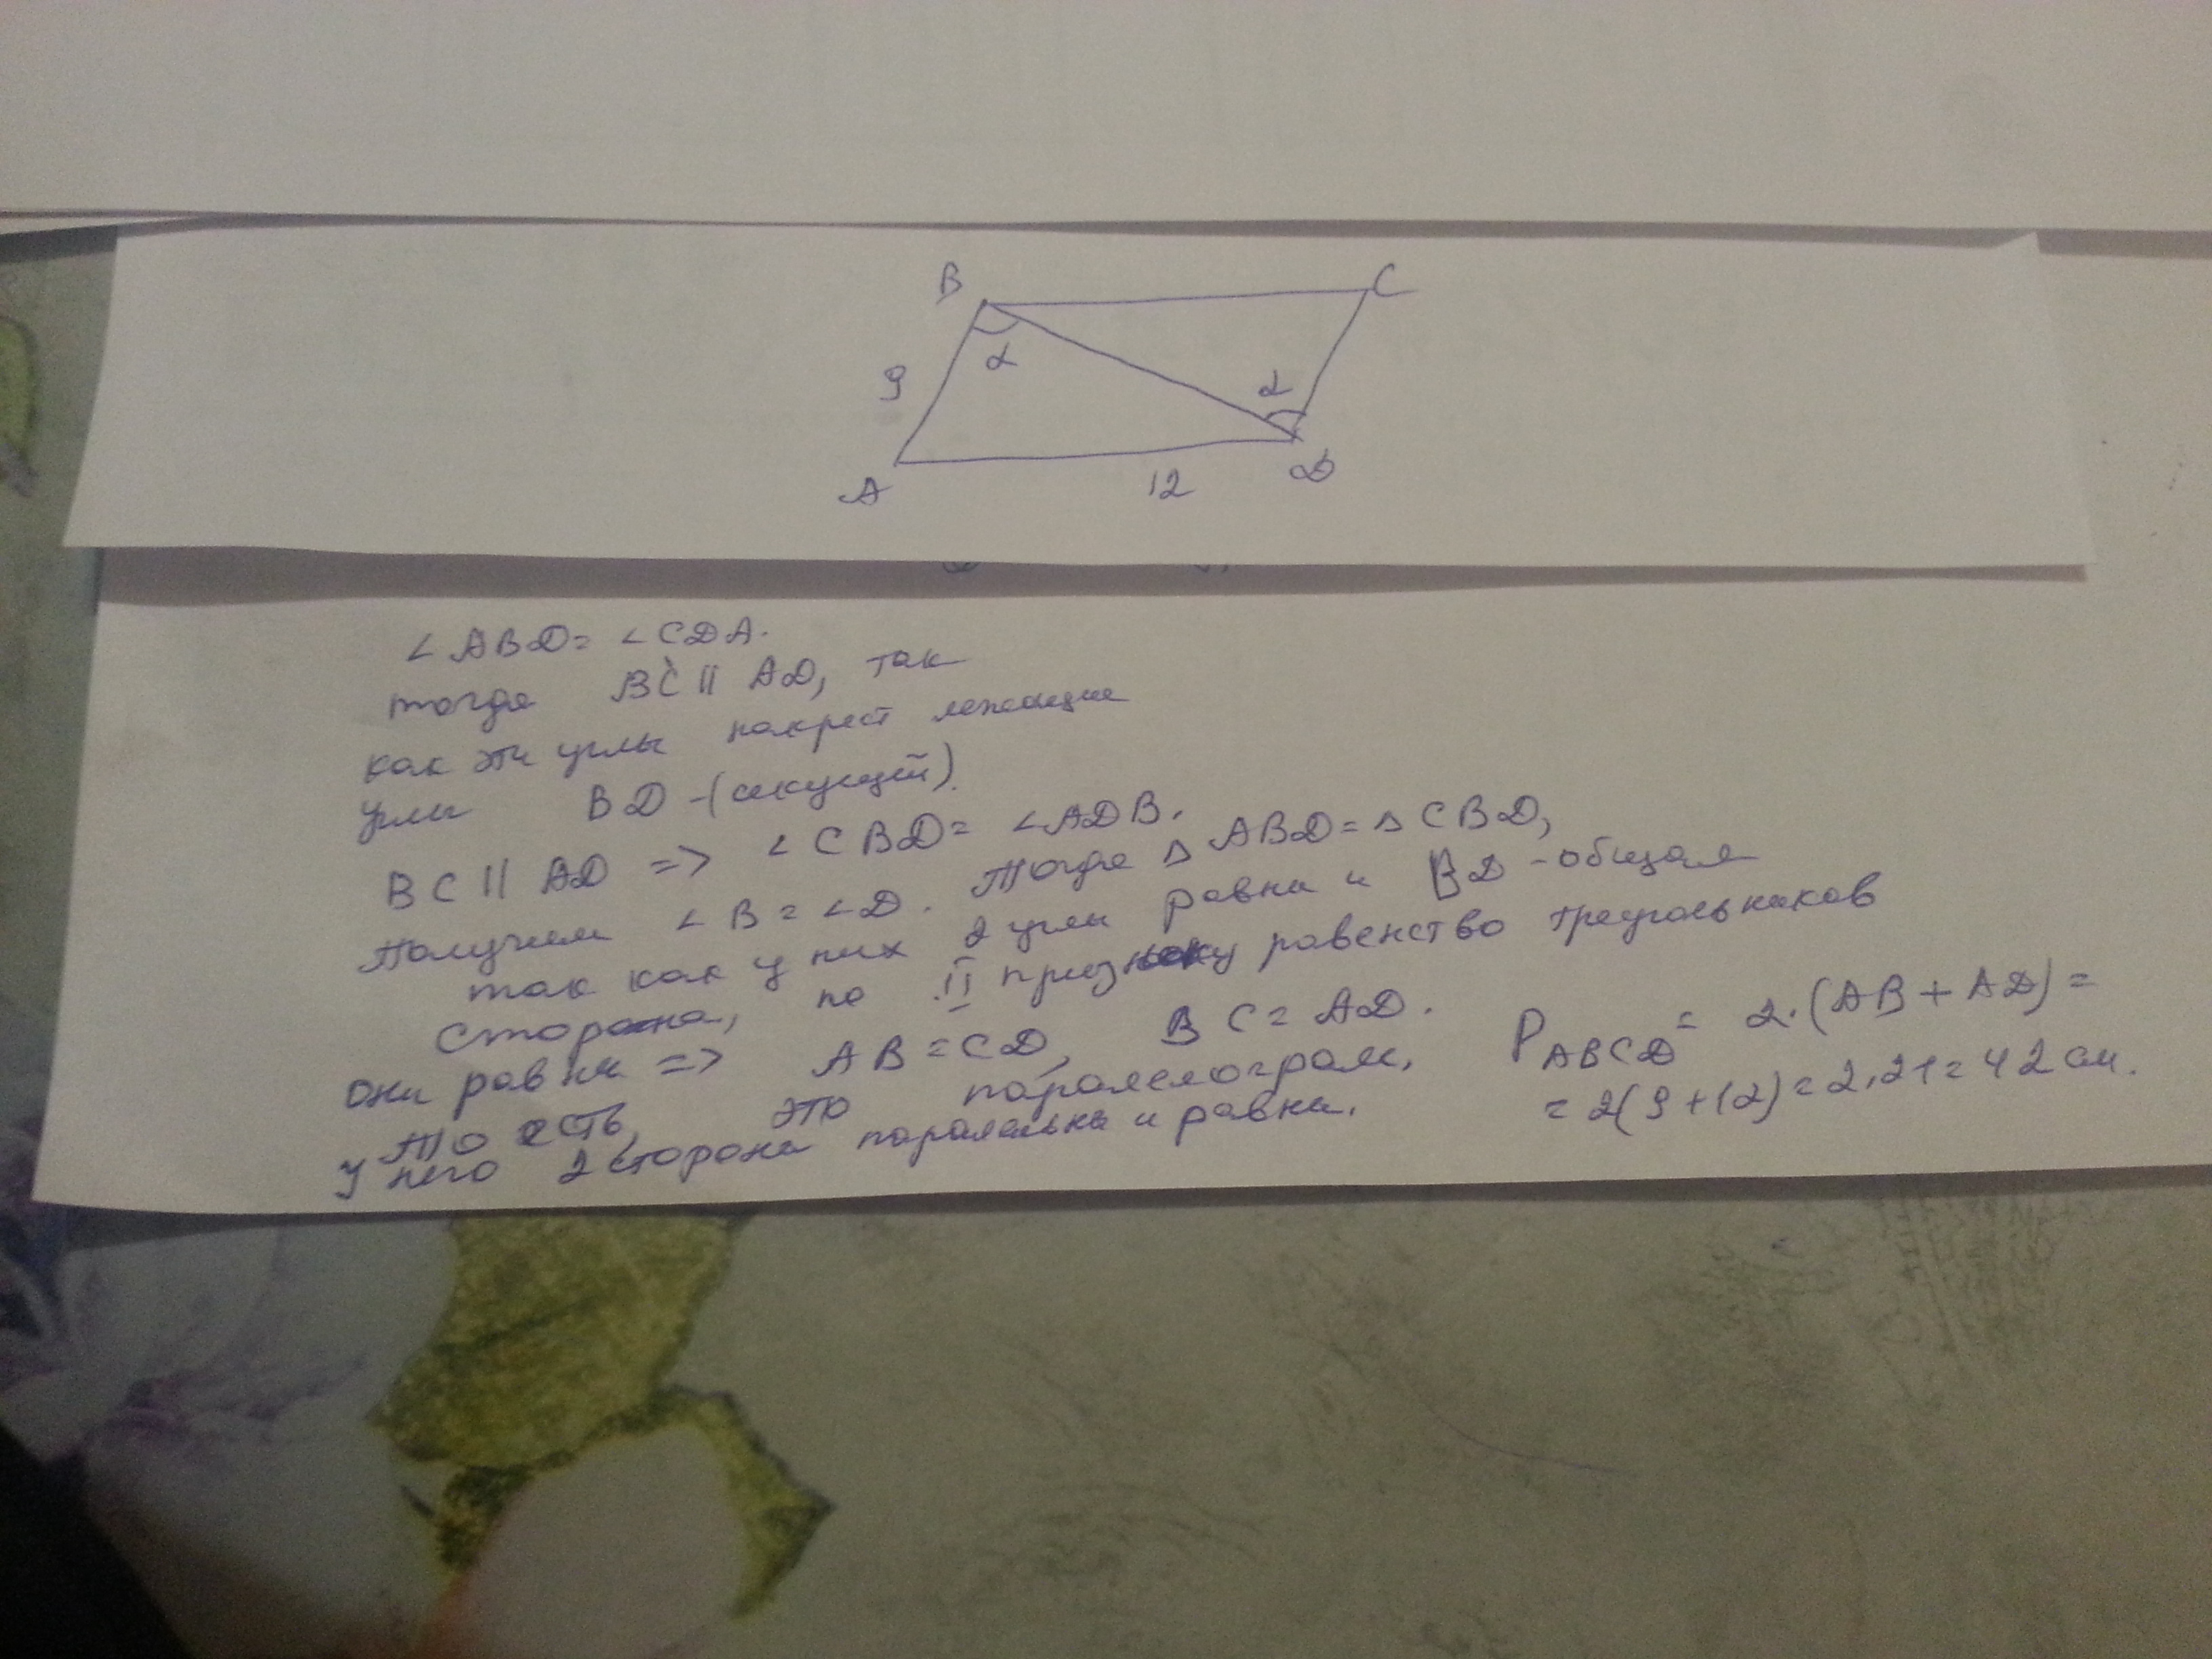 B
C
α
α
9
A
12
D
∠ABD = ∠CDA.
тогда BC || AD, так
как эти углы накрест лежащие
углы BD -(секущей).
BC || AD => ∠CBD = ∠ADB.
Получим ∠B = ∠D. Тогда △ABD = △CBD,
так как у них 2 углы равны и BD - общая
сторона, по II признаку равенство треугольников
они равны => AB = CD, BC = AD.
То есть, это паралелограм,
у него 2 стороны паралельны и равны.
P ABCD = 2·(AB + AD) =
= 2(9+12) = 2·21 = 42 см.